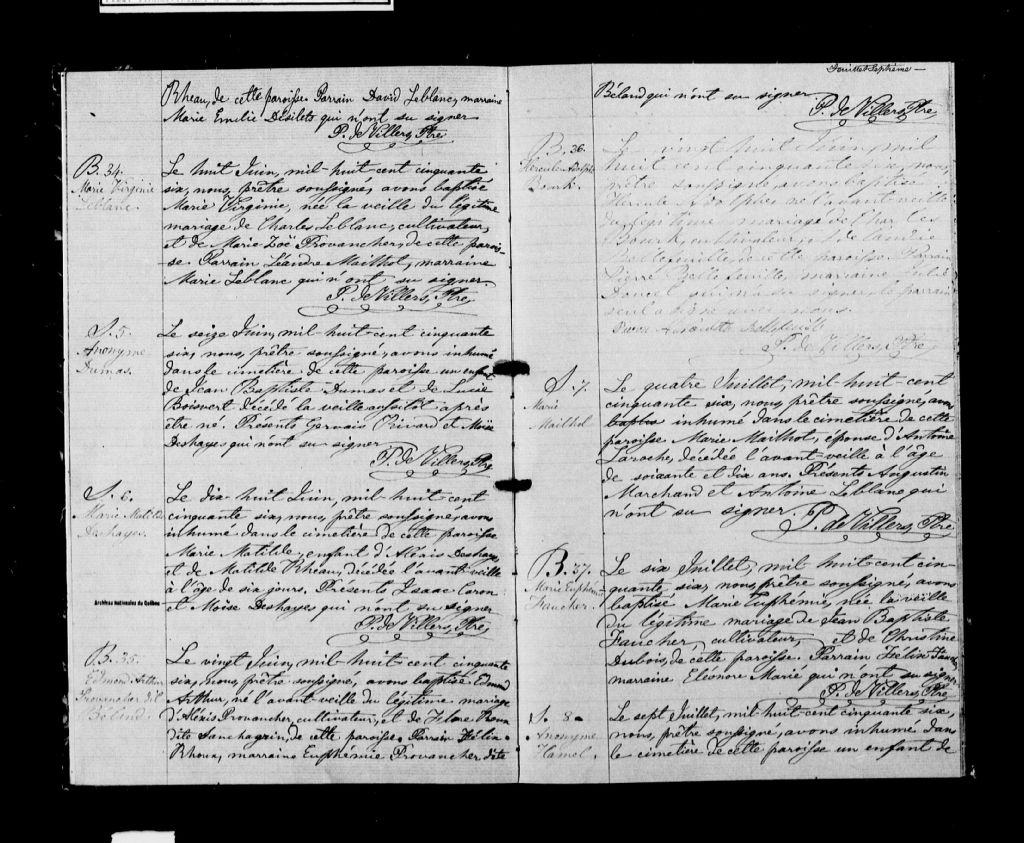 Rheau, de cette paroisse. Parrain David Leblanc, marraine
Marie Emilie Desilets qui n'ont su signer
P. de Villers, Ptre
B. 34.
Marie Virginie
Leblanc.
Le huit Juin, mil-huit-cent cinquante
six, nous, prêtre soussigné, avons baptisé
Marie Virginie, née la veille du légitime
mariage de Charles Leblanc, cultivateur,
et de Marie Zoë Provancher, de cette parois-
se. Parrain Léandre Mailhot, marraine
Marie Leblanc qui n'ont su signer
P. de Villers, Ptre
S. 5.
Anonyme
Dumas.
Le seize Juin, mil-huit-cent cinquante
six, nous, prêtre soussigné, avons inhumé
dans le cimetière de cette paroisse un enfant
de Jean Baptiste Dumas et de Luce
Boisvert décédé la veille aussitôt après
être né. Présents Germain Rivard et Moïse
Deshayes qui n'ont su signer
P. de Villers, Ptre
S. 6.
Marie Matilde
Deshayes.
Le dix-huit Juin, mil-huit-cent
cinquante six, nous, prêtre soussigné, avons
inhumé dans le cimetière de cette paroisse
Marie Matilde, enfant d'Aléxis Deshayes
et de Matilde Rheau, décédée l'avant-veille
à l'âge de six jours. Présents Isaac Caron
et Moïse Deshayes qui n'ont su signer
P. de Villers, Ptre
Archives nationales du Québec
B. 35.
Edmond Arthur
Provancher dit
Béland.
Le vingt Juin, mil-huit-cent cinquante
six, nous, prêtre soussigné, avons baptisé Edmond
Arthur, né l'avant-veille du légitime mariage
d'Aléxis Provancher, cultivateur, et de Flore
dite Sanchagrin, de cette paroisse. Parrain
Rhoux, marraine Euphémie Provancher dite
Feuillet Septième
Béland qui n'ont su signer
P. de Villers, Ptre
B. 36.
Hercule Adolphe
Bourk.
Le vingt huit Juin, mil
huit cent cinquante six, nous,
prêtre soussigné, avons baptisé
Hercule Adolphe né l'avant veille
du légitime mariage de Charles
Bourk, cultivateur, et de
Bellefeuille, de cette paroisse. Parrain
Pierre Bellefeuille, marraine Julie
Doucet qui n'a su signer, le parrain
seul a signé avec nous.
Bellefeuille
P. de Villers, Ptre
S. 7.
Marie
Mailhot
Le quatre Juillet, mil-huit-cent
cinquante six, nous, prêtre soussigné, avons
baptisé inhumé dans le cimetière de cette
paroisse Marie Mailhot, épouse d'Antoine
Laroche, décédée l'avant-veille à l'âge
de soixante et dix ans. Présents Augustin
Marchand et Antoine Leblanc qui
n'ont su signer.
P. de Villers, Ptre
B. 37.
Marie Euphémie
Faucher.
Le six Juillet, mil huit-cent cin-
quante, six, nous, prêtre soussigné, avons
baptisé Marie Euphémie, née la veille
du légitime mariage de Jean Baptiste
Faucher, cultivateur, et de Christine
Dubois, de cette paroisse. Parrain
marraine Eléonore Marie qui n'ont su signer
P. de Villers, Ptre
S. 8.
Anonyme
Hamel.
Le sept Juillet, mil-huit-cent cinquante six,
nous, prêtre soussigné, avons inhumé dans
le cimetière de cette paroisse un enfant de